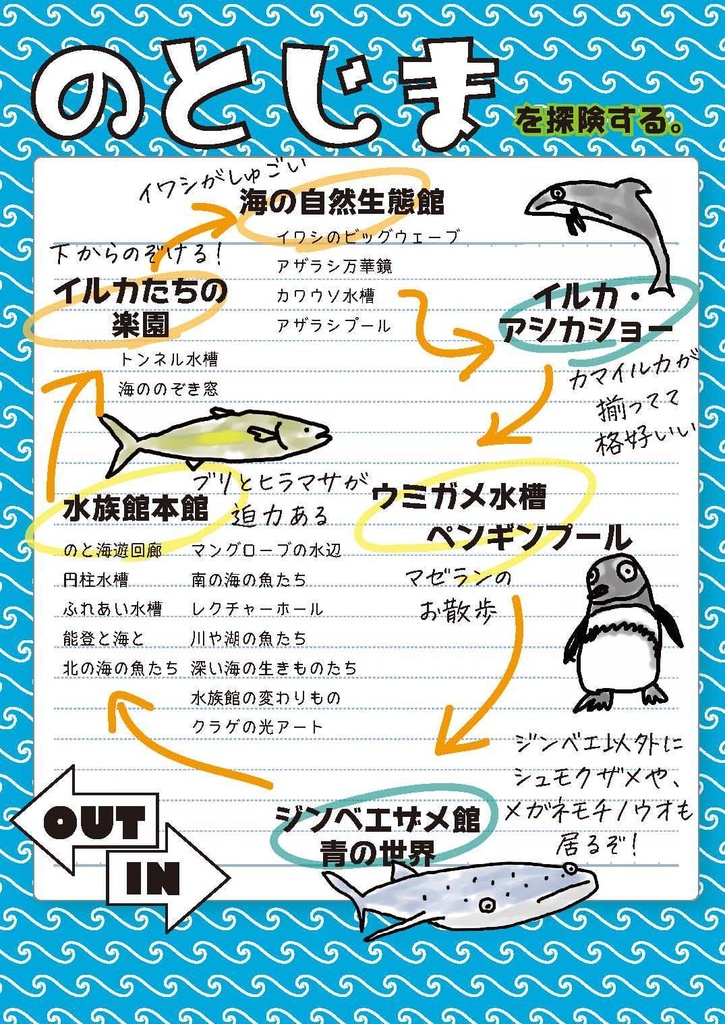 のとじま
を探険する。
イワシがしゅごい
海の自然生態館
イワシのビッグウェーブ
アザラシ万華鏡
カワウソ水槽
アザラシプール
下からのぞける!
イルカたちの
楽園
トンネル水槽
海ののぞき窓
イルカ・
アシカショー
カマイルカが
揃ってて
格好いい
水族館本館
ブリとヒラマサが
迫力ある
のと海遊回廊
円柱水槽
ふれあい水槽
能登と海と
北の海の魚たち
マングローブの水辺
南の海の魚たち
レクチャーホール
川や湖の魚たち
深い海の生きものたち
水族館の変わりもの
クラゲの光アート
ウミガメ水槽
ペンギンプール
マゼランの
お散歩
ジンベエ以外に
シュモクザメや、
メガネモチノウオも
居るぞ!
ジンベエザメ館
青の世界
OUT
IN